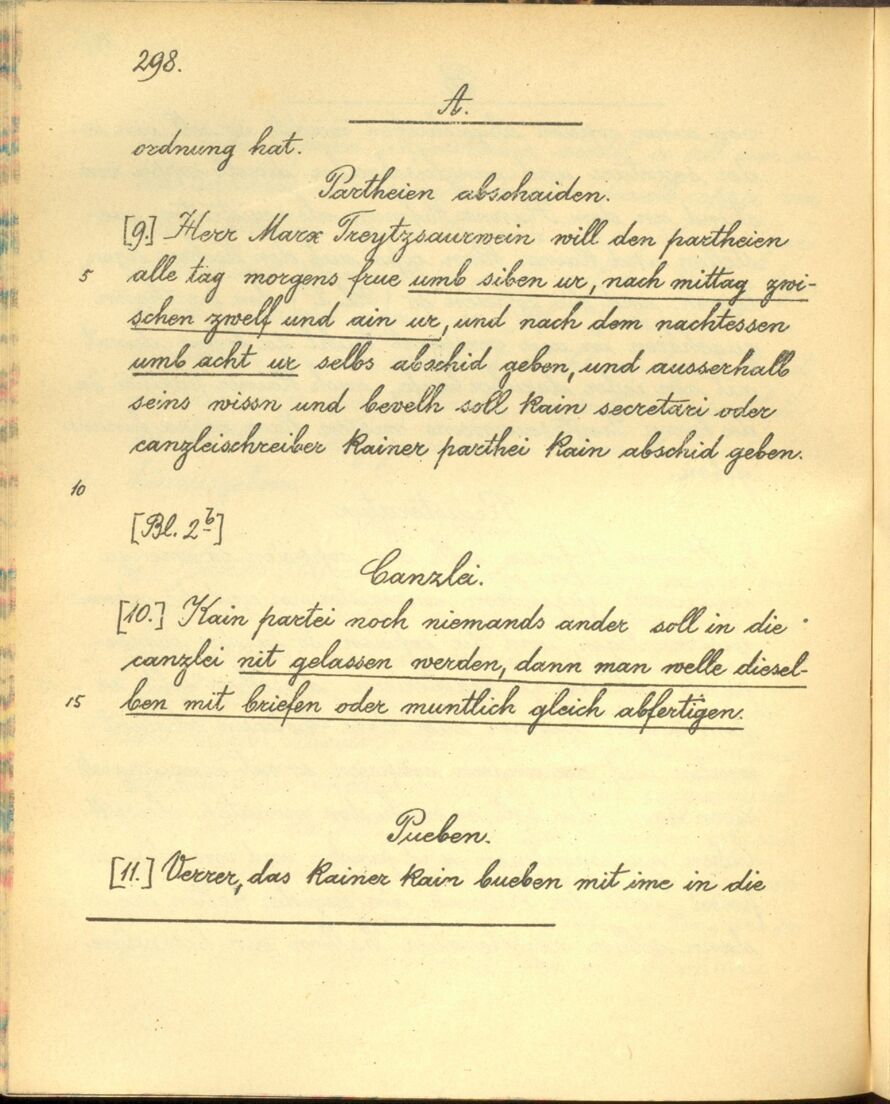 298.
A.
ordnung hat.
Partheien abschaiden.
[9.] Herr Marx Treytzsaurwein will den partheien
5 alle tag morgens frue umb siben ur, nach mittag zwi-
schen zwelf und ain ur, und nach dem nachtessen
umb acht ur selbs abschid geben, und ausserhalb
seins wissn und bevelh soll kain secretari oder
canzleischreiber kainer parthei kain abschid geben.
10
[Bl. 2b]
Canzlei.
[10.] Kain partei noch niemands ander soll in die
canzlei nit gelassen werden, dann man welle diesel-
15 ben mit briefen oder muntlich gleich abfertigen.
Pueben.
[11.] Verrer, das kainer kain bueben mit ime in die